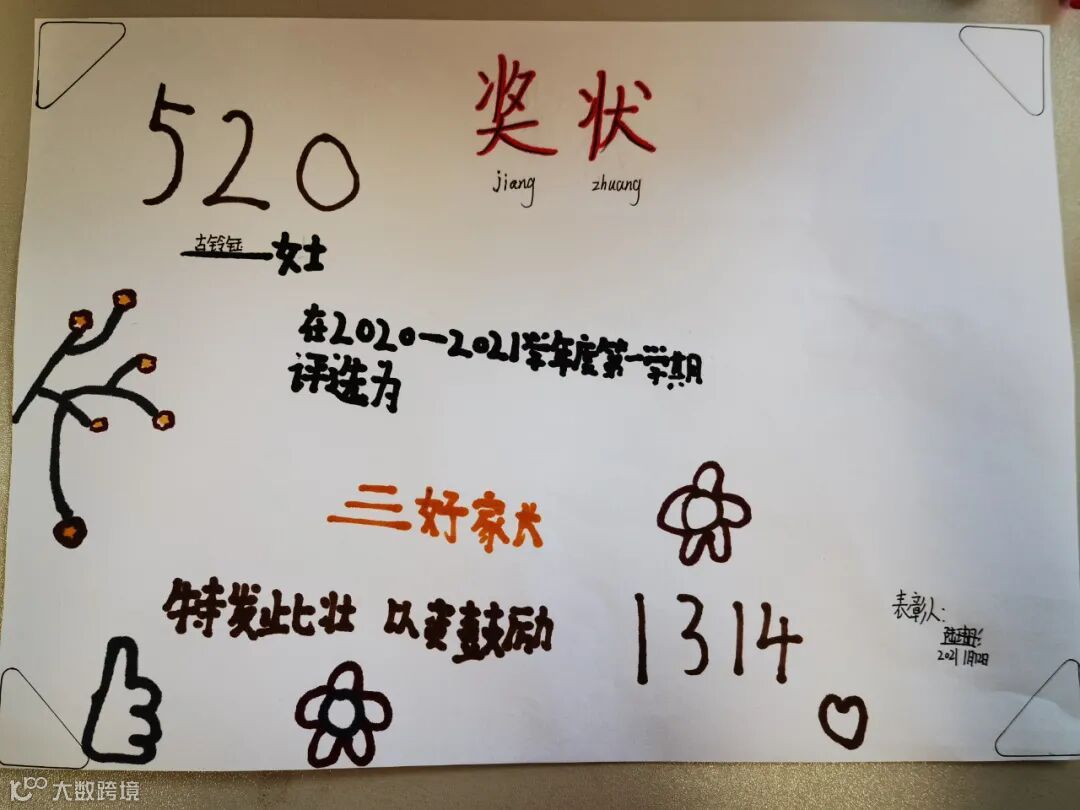 奖状
jiang zhuang
520
古铃钰女士
在2020一2021学年度第一学期
评选为
三好家长
特发此壮 以资鼓励
1314
表彰人:
2021 1月12日
大数跨境